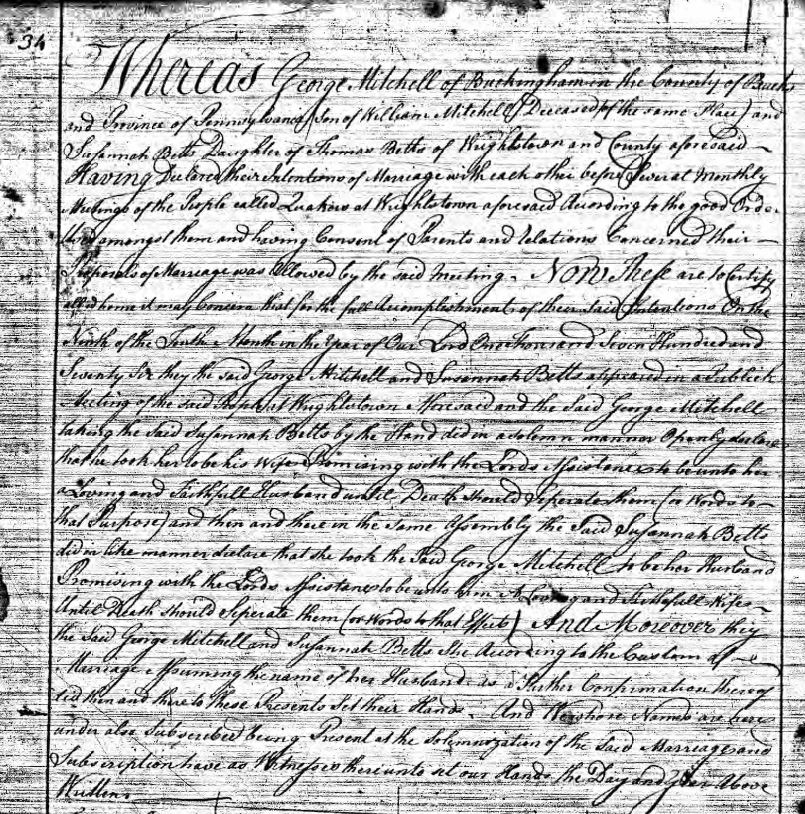 34
Whereas George Mitchell of Buckingham in the County of Bucks
and Province of Pennsylvania (Son of William Mitchell Deceased of the same Place) and
Susannah Betts Daughter of Thomas Betts of Wrightstown and County aforesaid
Having Declared their Intentions of Marriage with each other before Several Monthly
Meetings of the People called Quakers at Wrightstown aforesaid According to the good Order
Used amongst them and having Consent of Parents and Relations Concerned their
Proposals of Marriage was allowed by the said Meeting. Now These are to Certify
all whome it may Concern that for the full Accomplishment of their said Intentions On the
Ninth of the Tenth Month in the Year of Our Lord One Thousand Seven Hundred and
Seventy Six they the said George Mitchell and Susannah Betts appeared in a Publick
Meeting of the said People at Wrightstown Aforesaid and the Said George Mitchell
taking the Said Susannah Betts by the Hand did in a Solemn manner Openly declare
that he took her to be his Wife Promising with the Lords Assistance to be unto her
a Loving and Faithfull Husband until Death should seperate them (or Words to
that Purpose) and then and there in the Same Assembly the Said Susannah Betts
did in like manner declare that she took the Said George Mitchell to be her Husband
Promising with the Lords Assistance to be unto him A Loving and Faithfull Wife
Until Death should Seperate them (or Words to that Effect) And Moreover they
the Said George Mitchell and Susannah Betts She According to the Custom of
Marriage Assuming the name of her Husband as a Further Confirmation thereof
did then and there to These Presents Set their Hands. And We whose Names are here
under also Subscribed being Present at the Solemnization of the Said Marriage and
Subscription have as Witnesses thereunto set our Hands the Day and Year Above
Written